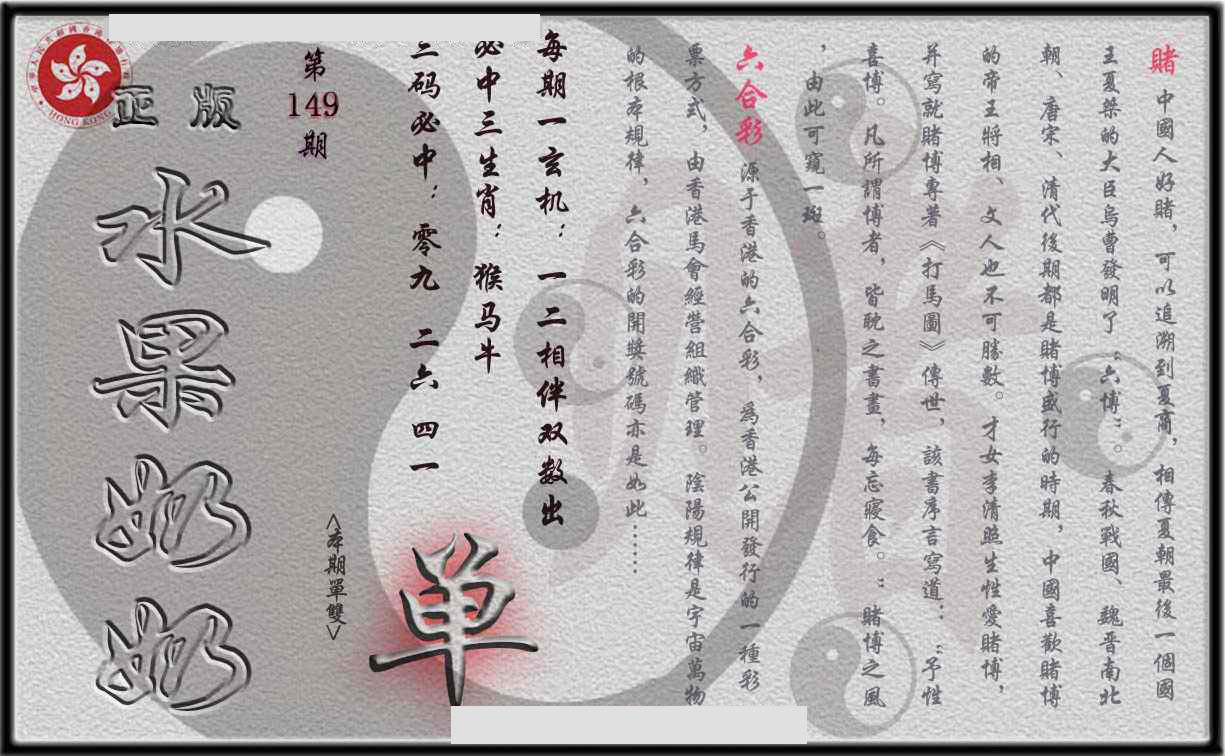 賭 中國人好賭，可以追溯到夏商，相傳夏朝最後一個國
王夏桀的大臣烏曹發明了“六博”。春秋戰國、魏晋南北
朝、唐宋、清代後期都是賭博盛行的時期，中國喜歡賭博
的帝王將相、文人也不可勝數。才女李清照生性愛賭博，
并寫就賭博專著《打馬圖》傳世，該書序言寫道：“予性
喜博。凡所謂博者，皆耽之書畫，每忘寢食。”賭博之風
，由此可窺一斑。
六合彩 源于香港的六合彩，爲香港公開發行的一種彩
票方式，由香港馬會經營組織管理。陰陽規律是宇宙萬物
的根本規律，六合彩的開獎號碼亦是如此……
每期一玄机：一二相伴双数出
必中三生肖：猴马牛
三码必中：零九 二六 四一
单
<本期單雙>
第
149
期
正版
水果奶奶
HONG KONG